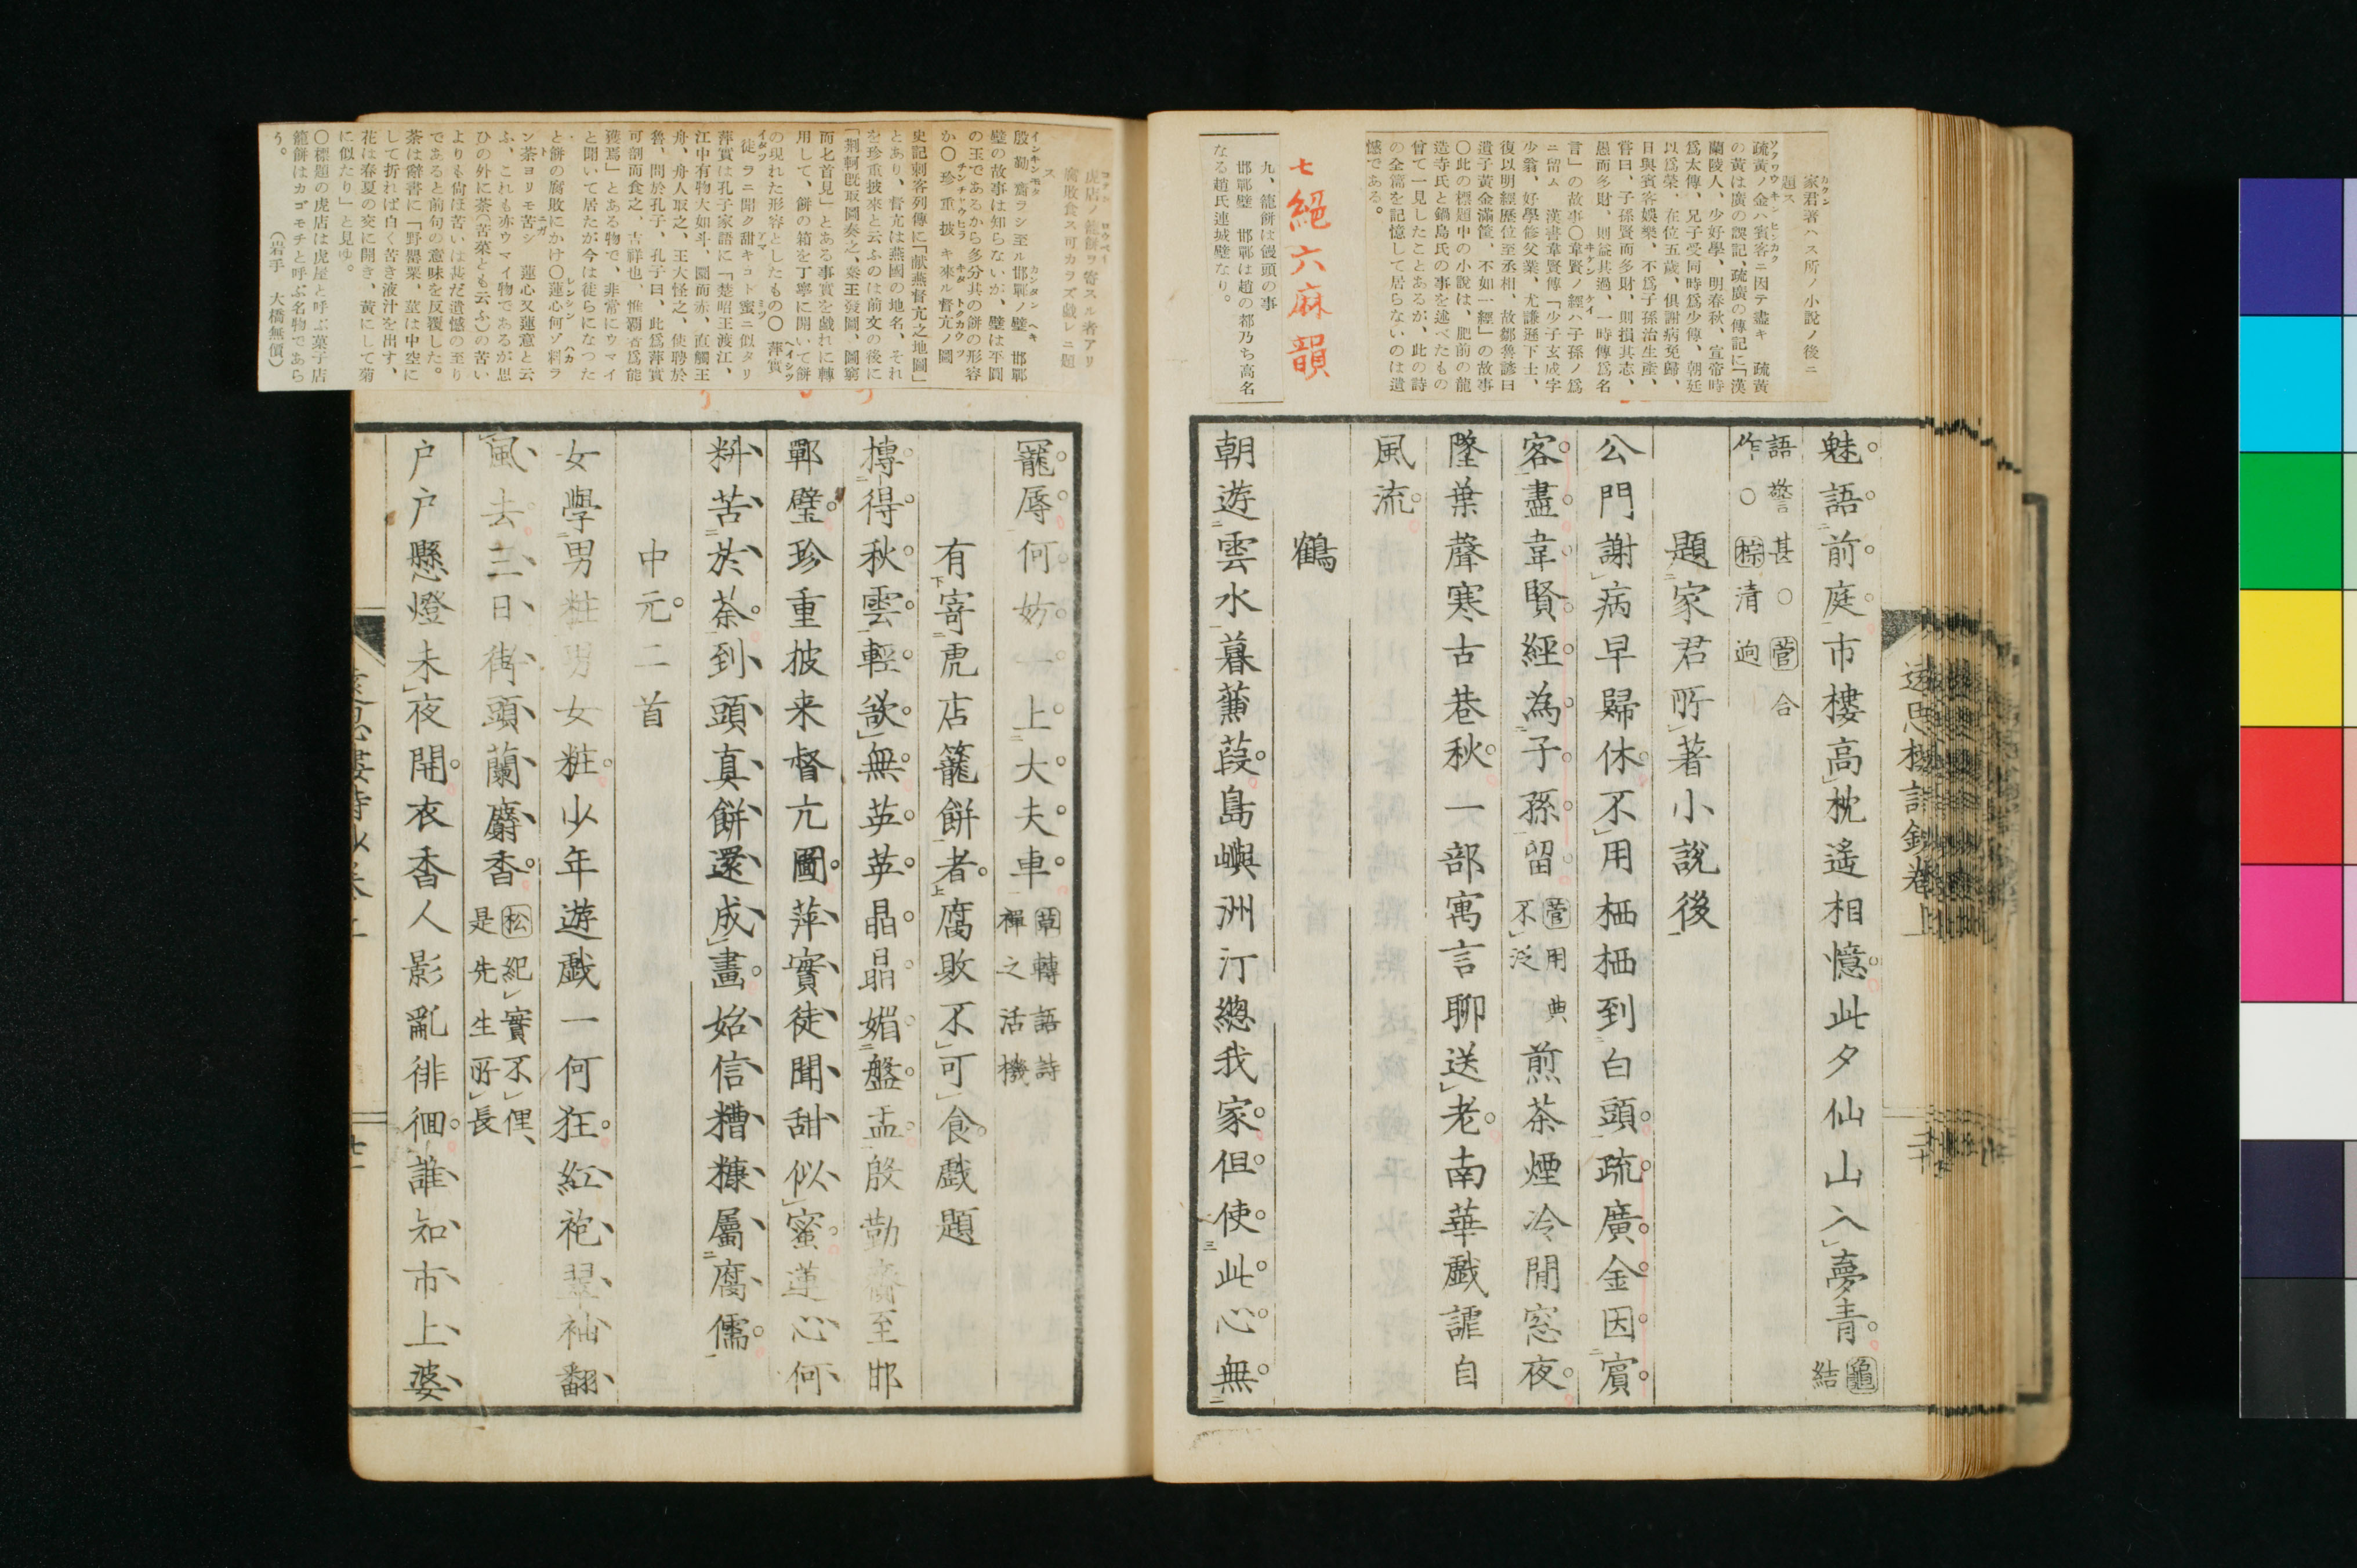 家君著ハス所ノ小説ノ後ニ
題ス
疏黄ノ金ハ賓客ニ因テ盡キ　疏黄
の黄は廣の誤記、疏廣の傳記に「漢
蘭陵人、少好學、明春秋、宣帝時
爲太傅、兄子受同時爲少傅、朝廷
以爲榮、在位五歳、俱謝病免歸、
日與賓客娯樂、不爲子孫治生産、
嘗曰、子孫賢而多財、則損其志、
愚而多財、則益其過、一時傳爲名
言」の故事〇韋賢ノ經ハ子孫ノ爲
ニ留ム　漢書韋賢傳「少子玄成字
少翁、好學修父業、尤謙遜下士、
復以明經歴位至丞相、故鄒魯諺曰
遺子黄金滿籯、不如一經」の故事
〇此の標題中の小説は、肥前の龍
造寺氏と鍋島氏の事を述べたもの
曾て一見したことあるが、此の詩
の全篇を記憶して居らないのは遺
憾である。
七絕六麻韻
九、籠餅は饅頭の事
邯鄲璧　邯鄲は趙の都乃ち高名
なる趙氏連城璧なり。
魅語前庭市樓高枕遙相憶此夕仙山入夢青 龜
結
語警甚〇菅合
作〇棕清逈
題家君所著小説後
公門謝病早歸休不用栖栖到白頭疏廣金因賓
客盡韋賢經為子孫留 菅用典
不泛
煎茶煙冷閒窓夜
隆葉聲寒古巷秋一部寓言聊送老南華戲謔自
風流
鶴
朝遊雲水暮蒹葭島嶼洲汀總我家但使此心無
遠思樓詩鈔卷上
二十
虎店ノ籠餅ヲ寄スル者アリ
腐敗食ス可カラズ戯レニ題
ス
殷勤齎ラシ至ル邯鄲ノ璧　邯鄲
璧の故事は知らないが、璧は平圓
の玉であるから多分其の餅の形容
か〇珍重披キ來ル督亢ノ圖
史記刺客列傳に「獻燕督亢之地圖」
とあり、督亢は燕國の地名、それ
を珍重披來と云ふのは前文の後に
「荆軻既取圖奏之、秦王發圖、圖窮
而匕首見」とある事實を戯れに轉
用して、餅の箱を丁寧に開いて餅
の現れた形容としたもの〇萍實
徒ラニ聞ク甜キコト蜜ニ似タリ
萍實は孔子家語に「楚昭王渡江、
江中有物大如斗、圓而赤、直觸王
舟、舟人取之、王大怪之、使聘於
魯、問於孔子、孔子曰、此爲萍實
可剖而食之、吉祥也、惟覇者爲能
獲焉」とある物で、非常にウマイ
と聞いて居たが今は徒らになつた
と餅の腐敗にかけ〇蓮心何ゾ料ラ
ン荼ヨリモ苦シ　蓮心又蓮意と云
ふ、これも亦ウマイ物であるが思
ひの外に荼（苦菜とも云ふ）の苦い
よりも尚ほ苦いは甚だ遺憾の至り
であると前句の意味を反覆した。
荼は辭書に「野罌粟、莖は中空に
して折れば白く苦き液汁を出す、
花は春夏の交に開き、黄にして菊
に似たり」と見ゆ。
〇標題の虎店は虎屋と呼ぶ菓子店
籠餅はカゴモチと呼ぶ名物であら
う。　（岩手　大橋無價）
寵辱何妨一上大夫車 草轉語詩
禪之活機
有寄虎店籠餅者腐敗不可食戲題
摶得秋雲輕欲無英英皛皛媚盤盂殷勤齎至邯
鄲璧珍重披来督亢圖萍實徒聞甜似蜜蓮心何
料苦於荼到頭真餅還成畫始信糟糠屬腐儒
中元二首
女學男粧男女粧少年遊戲一何狂紅袍翠袖翻
風去三日街頭蘭麝香 松紀實不俚、
是先生所長
户户懸燈未夜開衣香人影亂徘徊誰知市上婆